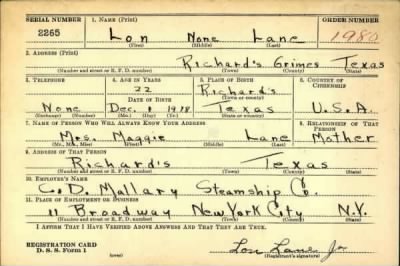 SERIAL NUMBER 1. NAME (Print) ORDER NUMBER
2265 Lon None Lane 1980
(First) (Middle) (Last)
2. ADDRESS (Print)
Richard's Grimes Texas
(Number and street or R. F. D. number) (Town) (County) (State)
3. TELEPHONE 4. AGE IN YEARS 5. PLACE OF BIRTH 6. COUNTRY OF CITIZENSHIP
22 Richard's
DATE OF BIRTH (Town or county)
None Dec. 1 1918 Texas U.S.A.
(Exchange) (Number) (Mo.) (Day) (Yr.) (State or country)
7. NAME OF PERSON WHO WILL ALWAYS KNOW YOUR ADDRESS 8. RELATIONSHIP OF THAT PERSON
Mrs. Maggie Lane Mother
(Mr., Mrs., Miss) (First) (Middle) (Last)
9. ADDRESS OF THAT PERSON
Richard's Texas
(Number and street or R. F. D. number) (Town) (County) (State)
10. EMPLOYER'S NAME
C.D. Mallary Steamship Co.
11. PLACE OF EMPLOYMENT OR BUSINESS
11 Broadway New York City N.Y.
(Number and street or R. F. D. number) (Town) (County) (State)
I AFFIRM THAT I HAVE VERIFIED ABOVE ANSWERS AND THAT THEY ARE TRUE.
REGISTRATION CARD
D. S. S. Form 1 Lon Lane Jr
(Registrant's signature)